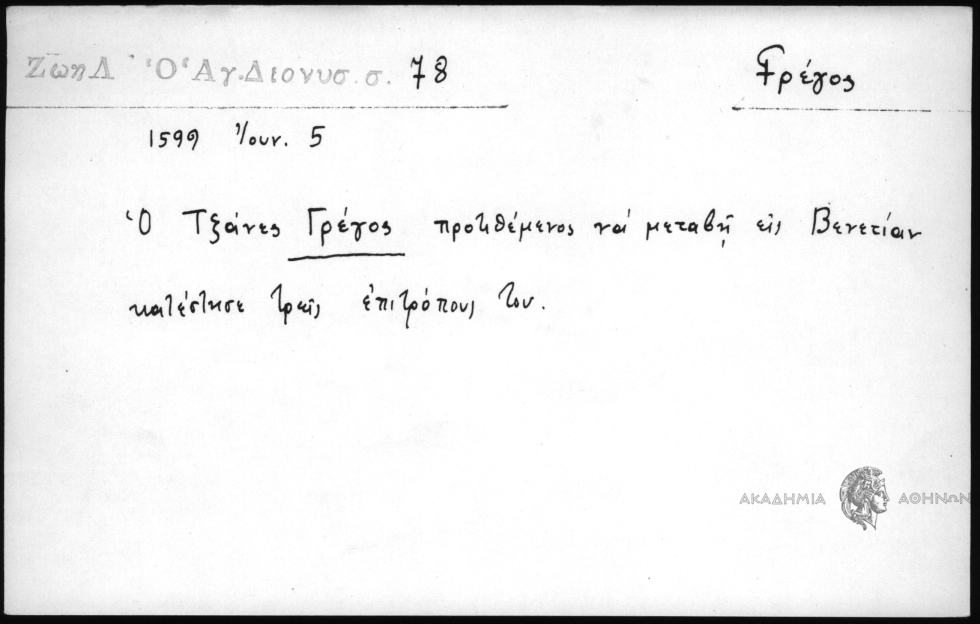 Ζώη Λ. Ὁ Ἅγ. Διονυσ. σ. 78
Γρέγος
1599 Ἰουν. 5
Ὁ Τζάνες Γρέγος προτιθέμενος νά μεταβῇ εἰς Βενετίαν
κατέστησε τρεῖς ἐπιτρόπους του.
ΑΚΑΔΗΜΙΑ ΑΘΗΝΩΝ